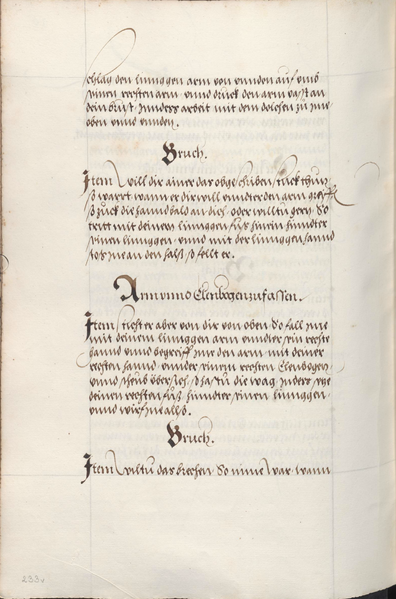 schlag den linnggen arm von vnnden auf vmb
seinen rechten arm vnnd druck den arm vasst an
dein brust, ... arbeit mit dem dolchen zu ime
oben vnnd vnnden.
Bruch.
Item Will dir ainer das obgeschriben stuck thun
so wartt wann er dir will vnnder den arm greiffen
so zuck die hannd bald an dich, oder willtu gern So
tritt mit deinem linnggen fus ... hinnder
seinen linnggen vnnd mit der linnggen hannd
stos ine an den halß so fellt er.
Arm vnnd Elenbogen zufassen.
Item sticht er aber von dir von oben So fall ime
mit deinem linnggen arm vnnder sein rechte
hannd vnnd begreiff ime den arm mit deiner
rechten hannd vnnder seinem rechten Elenbogen
vnnd scheub übersich, so hastu die wag ... setz
deinen rechten fuß hinnder seinen linnggen
vnnd wirf ine also.
Bruch.
Item Wiltu das brechen So nime war wann
233v